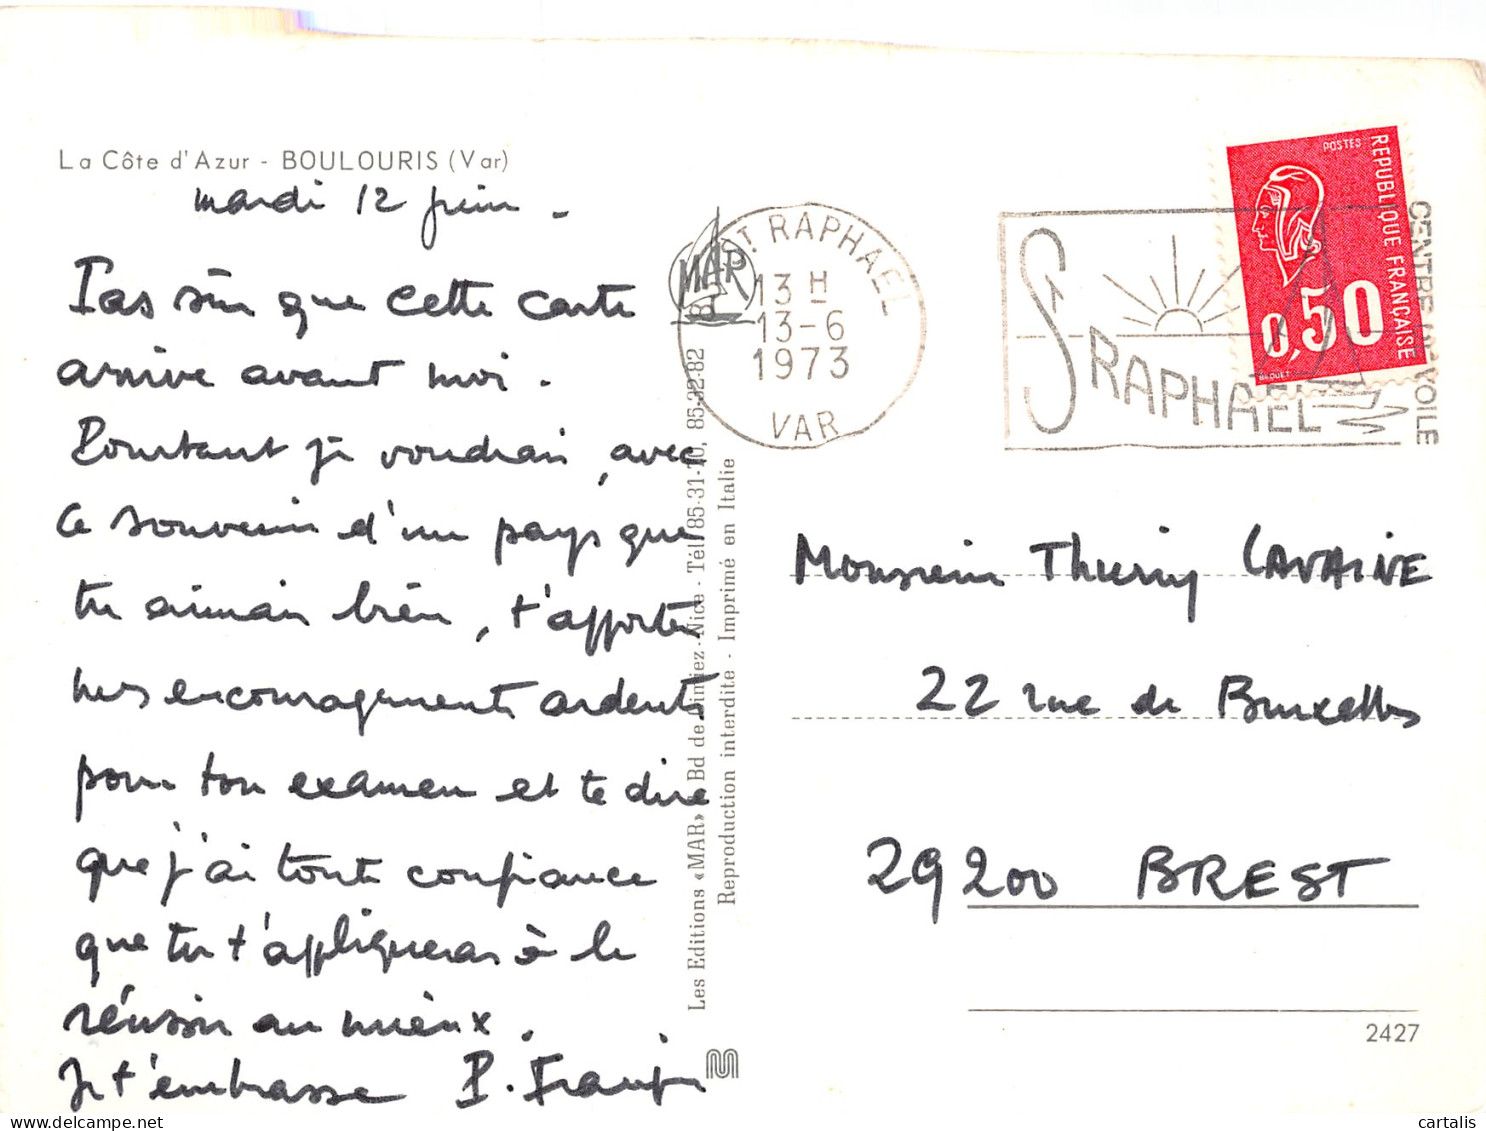 La Côte d'Azur - BOULOURIS (Var)
mardi 12 juin -
Pas sûr que cette carte
arrive avant moi.
Pourtant je voudrais, avec
ce souvenir d'un pays que
tu aimais bien, t'apporter
mes encouragements ardents
pour ton examen et te dire
que j'ai toute confiance
que tu t'appliqueras à le
réussir au mieux.
Je t'embrasse P. François
MAR
Les Editions «MAR» Bd de Cimiez - Nice - Tél 85-31-10, 85-32-82
Reproduction interdite - Imprimé en Italie
83 ST RAPHAEL
13 H
13-6
1973
VAR
ST RAPHAEL
CENTRE DE VOILE
POSTES
REPUBLIQUE FRANÇAISE
0,50
BEQUET
Monsieur Thierry LAVAINE
22 rue de Bruxelles
29200 BREST
2427
cartalis